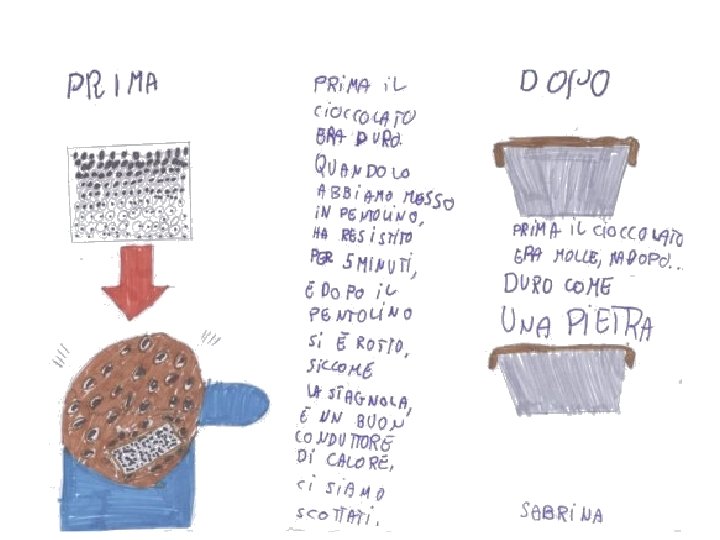 PRIMA
PRIMA IL
CIOCCOLATO
ERA DURO.
QUANDO LO
ABBIAMO MESSO
IN PENTOLINO,
HA RESISTITO
PER 5 MINUTI,
E DOPO IL
PENTOLINO
SI È ROTTO,
SICCOME
LA STAGNOLA,
È UN BUON
CONDUTTORE
DI CALORE,
CI SIAMO
SCOTTATI.
DOPO
PRIMA IL CIOCCOLATO
ERA MOLLE, MA DOPO...
DURO COME
UNA PIETRA
SABRINA